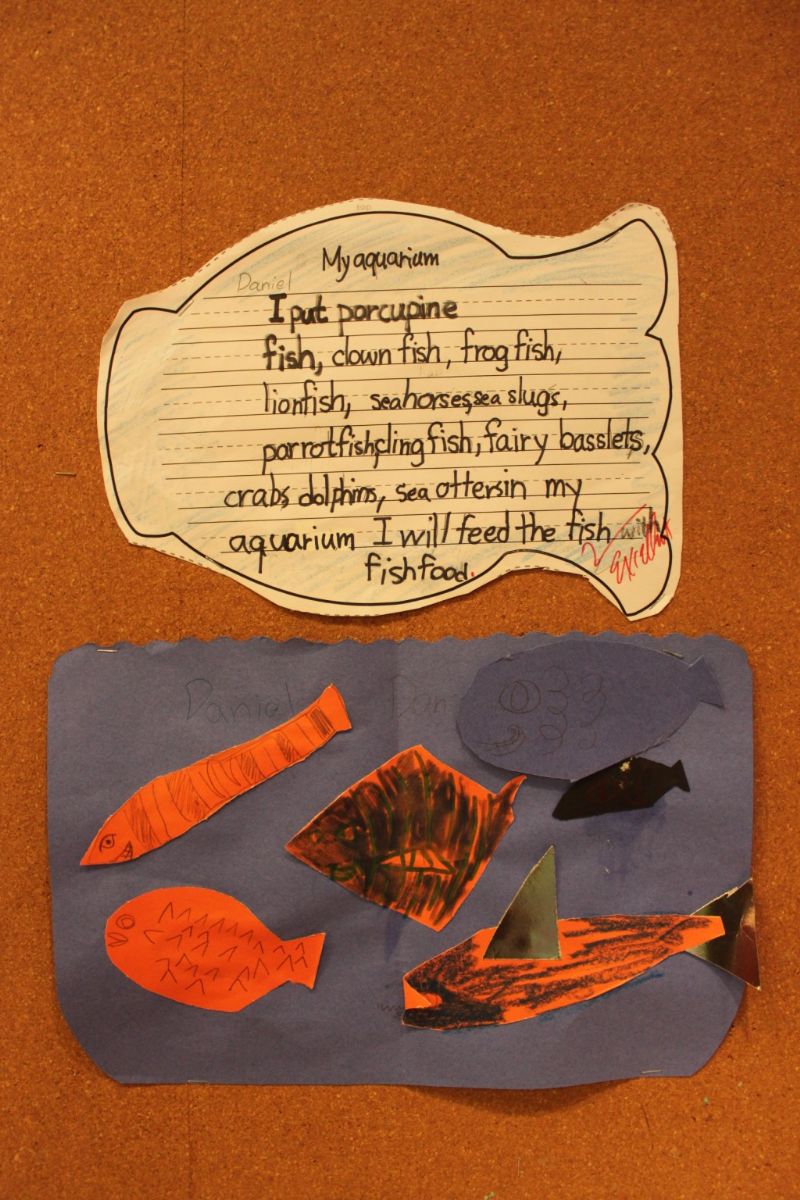 My aquarium
Daniel
I put porcupine
fish, clown fish, frog fish,
lionfish, seahorses, sea slugs,
parrotfish, sling fish, fairy basslets,
crabs dolphins, sea otters in my
aquarium I will feed the fish with
fish food.
Excellent
Daniel Dan